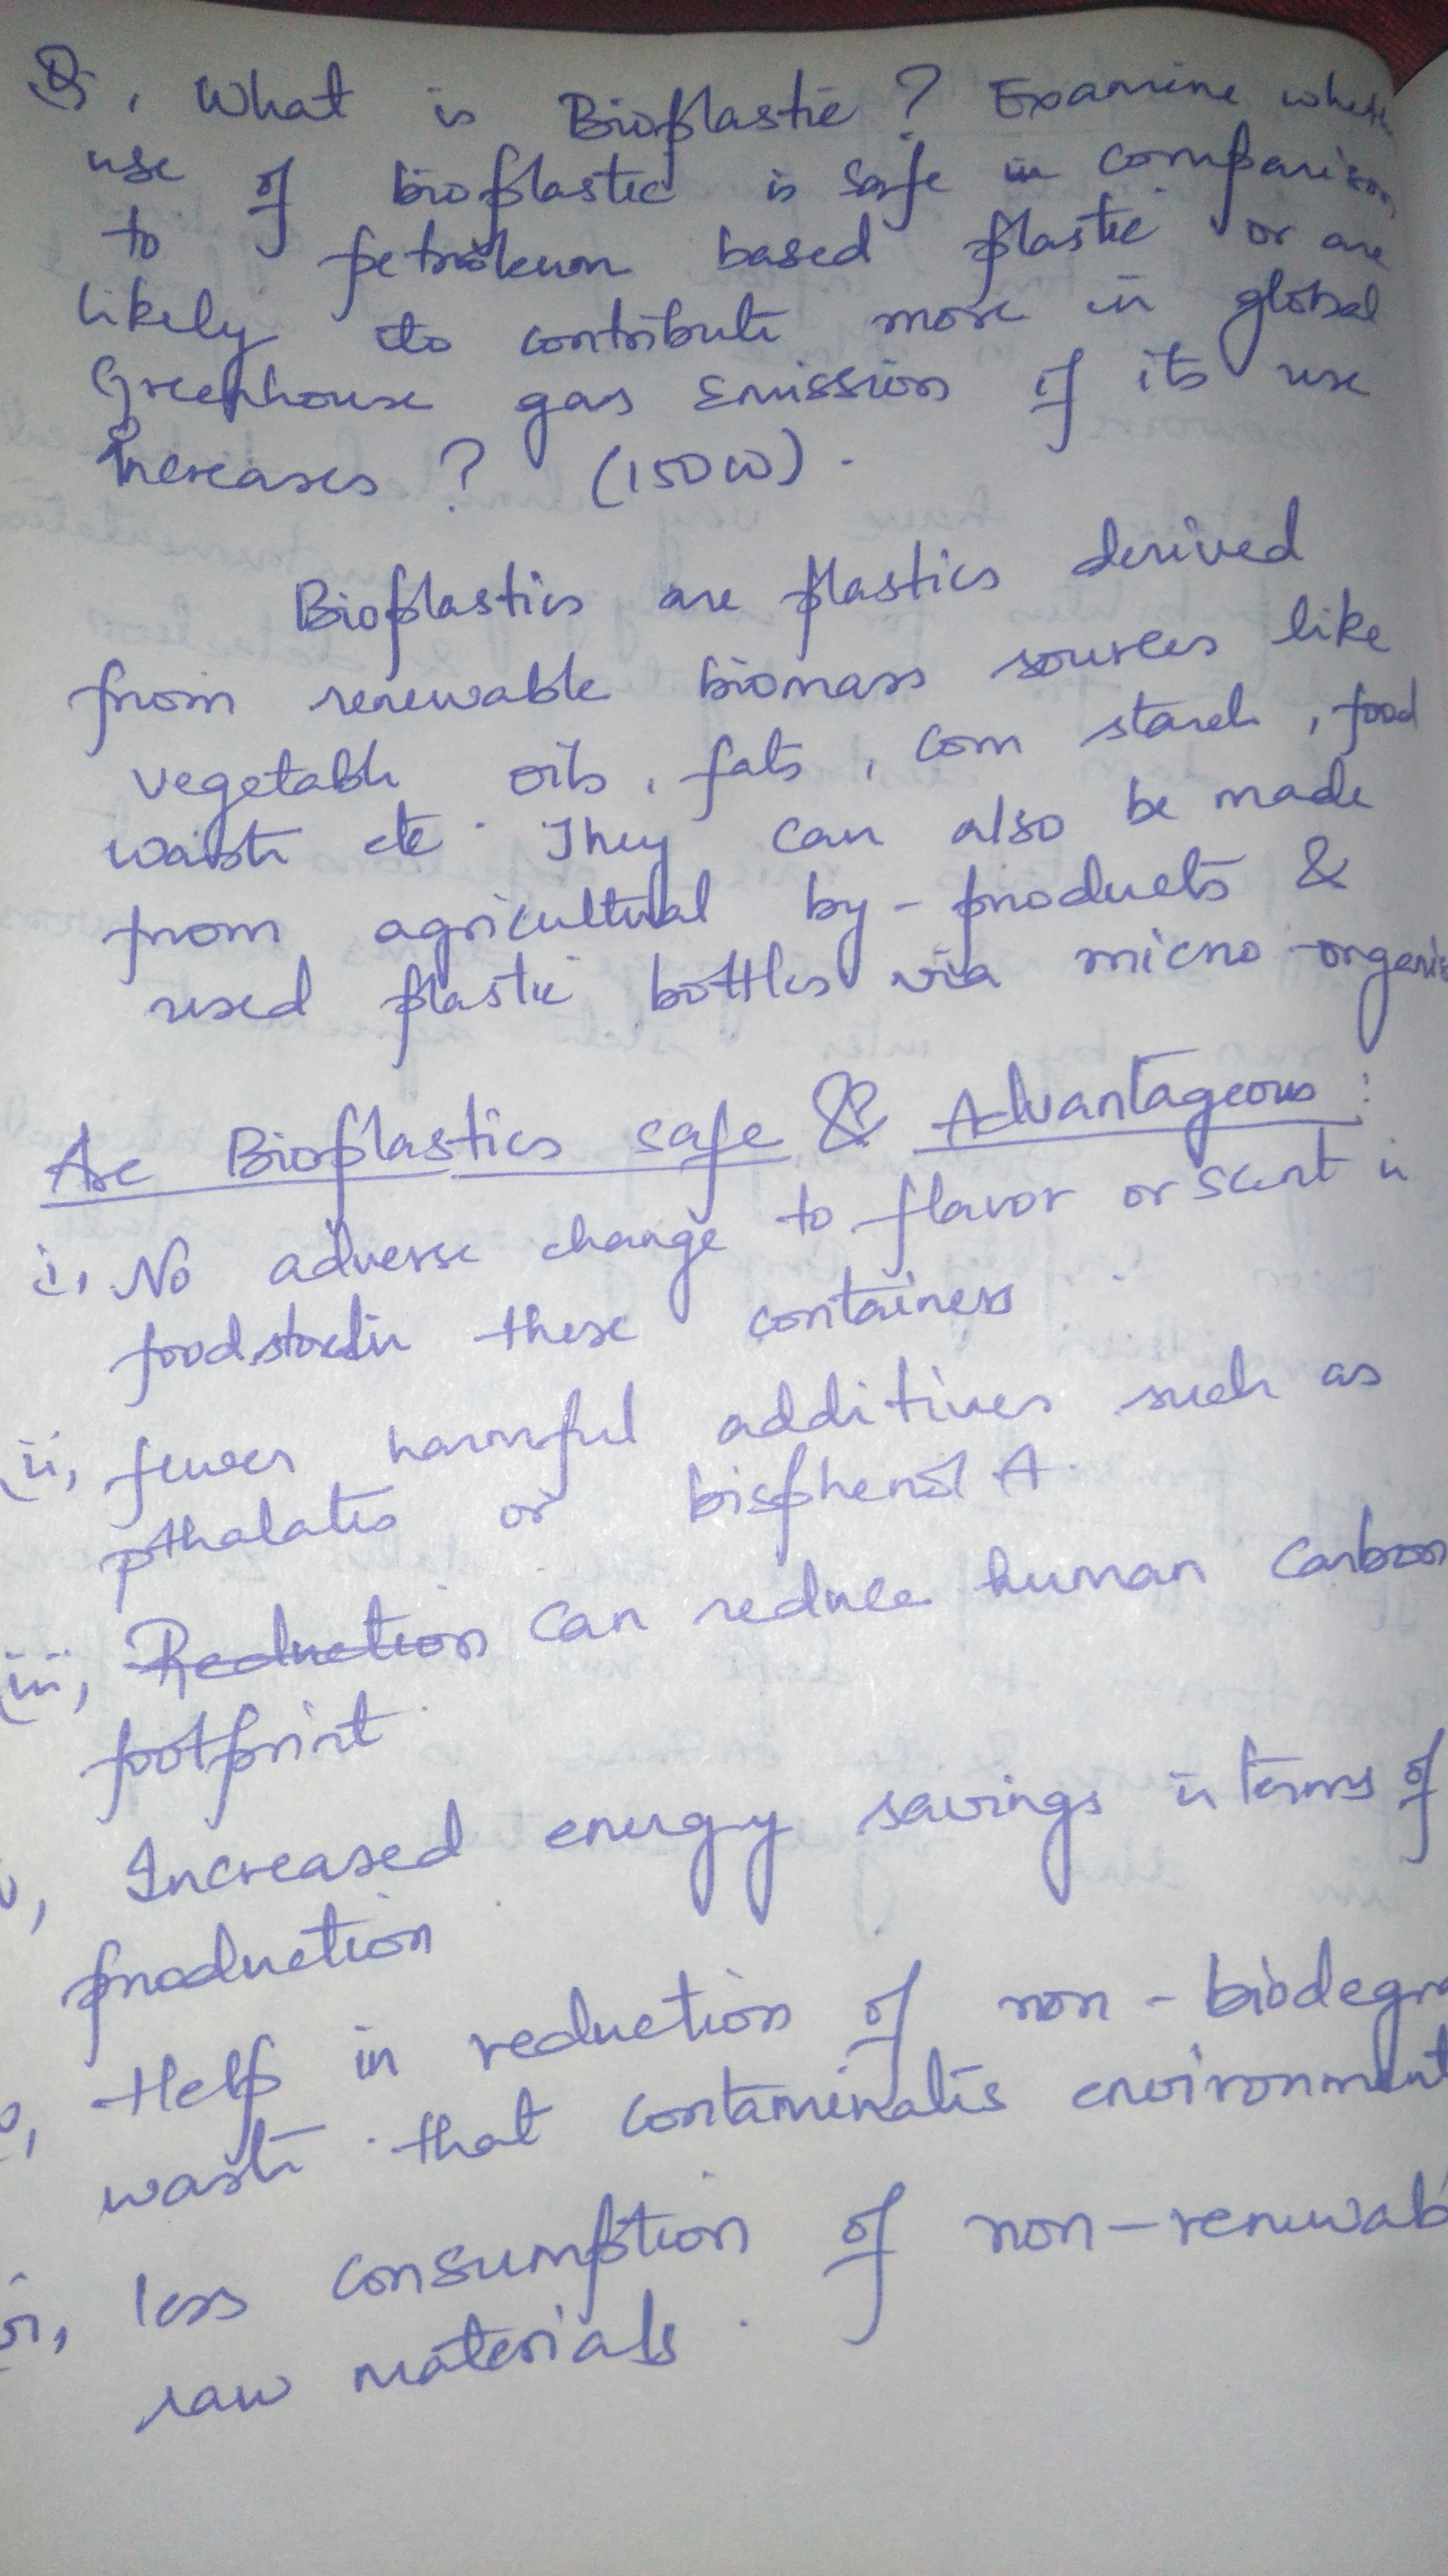 Q. What is Bioplastic ? Examine whether
use of bioplastic is safe in comparison
to petroleum based plastic or are
likely to contribute more in global
Greenhouse gas Emission if its use
increases ? (150W).
Bioplastics are plastics derived
from renewable biomass sources like
vegetable oils, fats, corn starch, food
waste etc. They can also be made
from agricultural by-products &
used plastic bottles via micro-organis
Are Bioplastics safe & Advantageous:
i, No adverse change to flavor or scent in
food stored in these containers
ii, fewer harmful additives such as
pthalates or bisphenol A.
iii, Reduction Can reduce human Carbon
footprint.
v, Increased energy savings in terms of
production
v, Help in reduction of non-biodegra
waste that contaminates environment
vi, less consumption of non-renewab
raw materials.